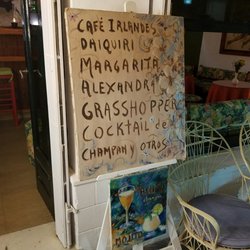 CAFÉ IRLANDES
DAIQUIRI
MARGARITA
ALEXANDRA
GRASSHOPPER
COCKTAIL de
CHAMPAN Y OTROS
MOJITO